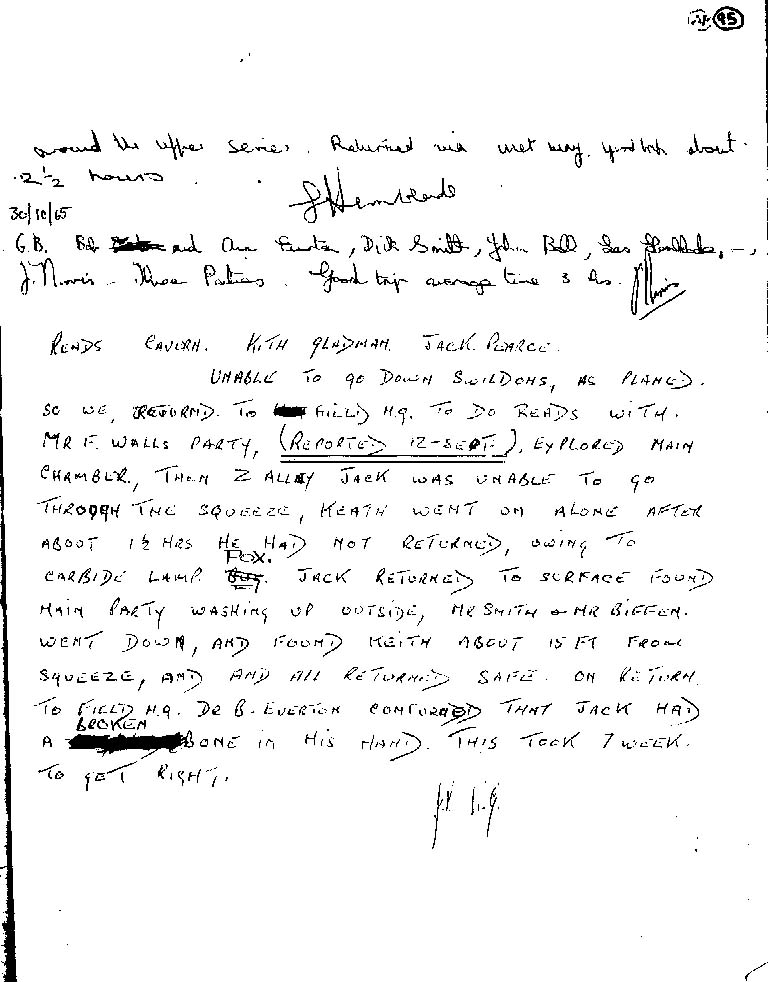 95
around the upper series. Returned via wet way, good trip about
2½ hours.
30/10/65
G.B. Bob and Ann Everton, Dick Smith, John Ball, Les
J. Norris - Three Parties. Good trip average time 3 hrs. J Norris
READS CAVERN. KITH GLADMAN. JACK PEARCE.
UNABLE TO GO DOWN SWILDONS, AS PLANED.
SO WE, RETURND. TO FIELD H.Q. TO DO READS WITH.
MR F. WALLS PARTY, (REPORTED 12-SEPT.), EXPLORED MAIN
CHAMBER, THEN Z ALLEY JACK WAS UNABLE TO GO
THROUGH THE SQUEEZE, KEATH WENT ON ALONE AFTER
ABOUT 1½ HRS HE HAD NOT RETURNED, OWING TO
CARBIDE LAMP. POX. JACK RETURNED TO SURFACE FOUND
MAIN PARTY WASHING UP OUTSIDE, MR SMITH & MR BIFFEN.
WENT DOWN, AND FOUND KEITH ABOUT 15 FT FROM
SQUEEZE, AND AND ALL RETURNED SAFE. ON RETURN.
TO FIELD H.Q. DR B. EVERTON CONFURMED THAT JACK HAD
A BROKEN BONE IN HIS HAND. THIS TOOK 7 WEEK.
TO GET RIGHT.